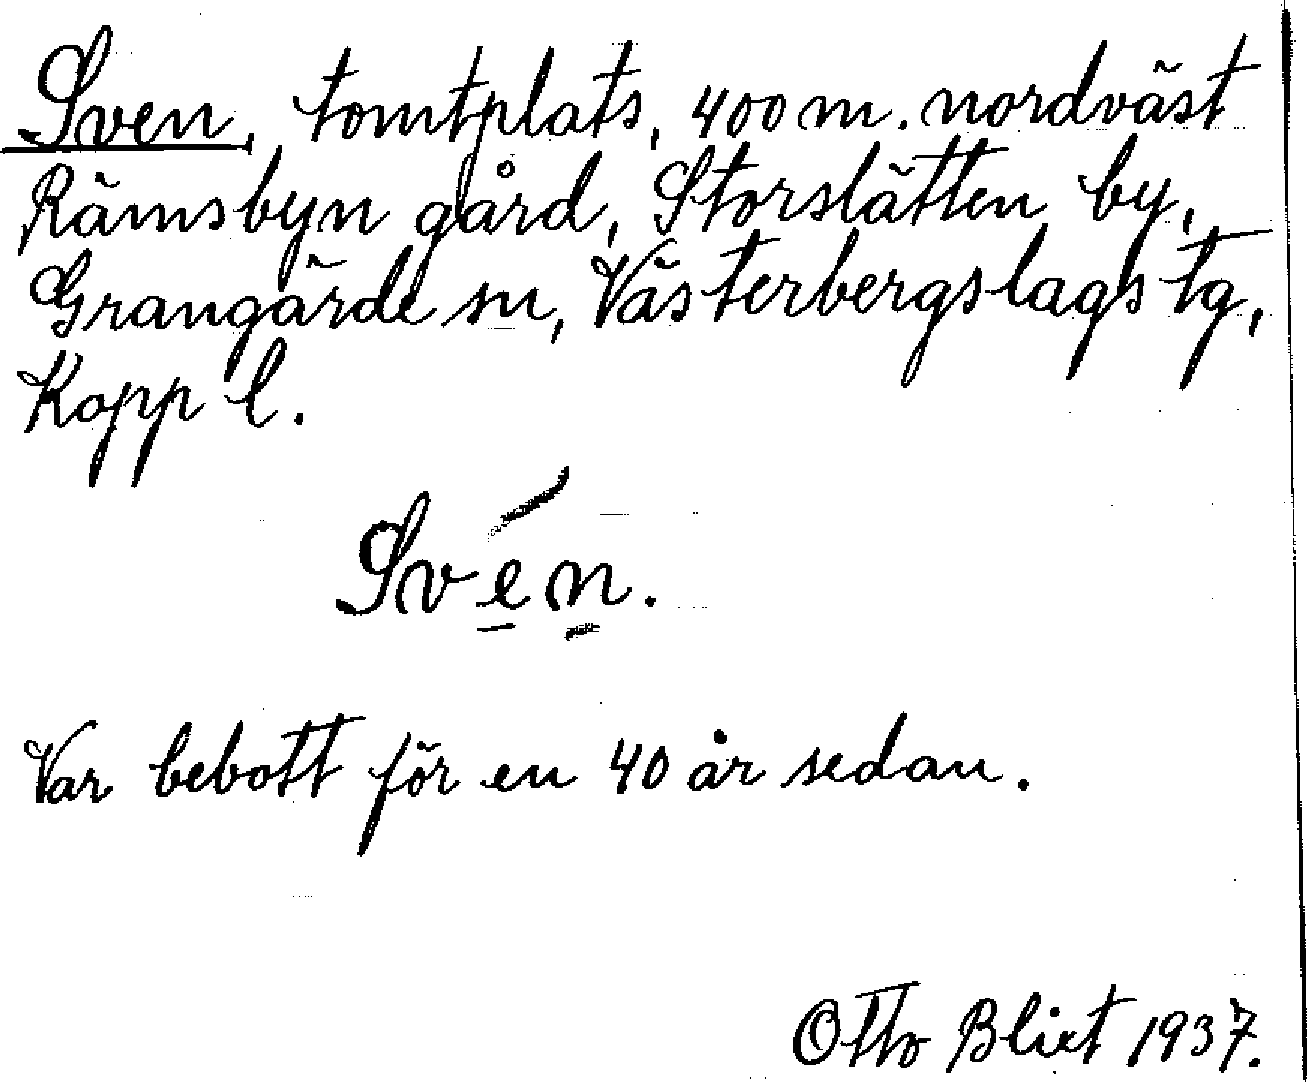 Sven, tomtplats, 400 m. nordväst
Rämsbyn gård, Storslätten by,
Grangärde sn, Västerbergslags tg,
Kopp l.
Svén.
Var bebott för en 40 år sedan.
Otto Blixt 1937.